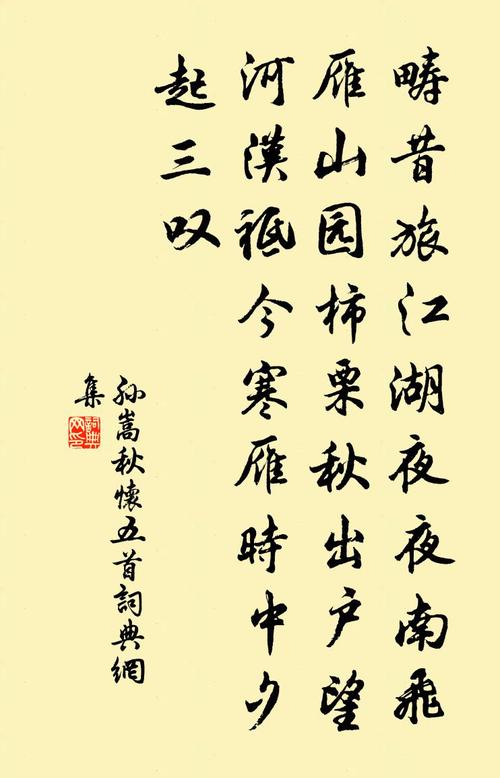 畴昔旅江湖夜夜南飛
雁山园柿栗秋出户望
河漢祗今寒雁時中夕
起三叹
孙嵩秋懷五首詞典網
集